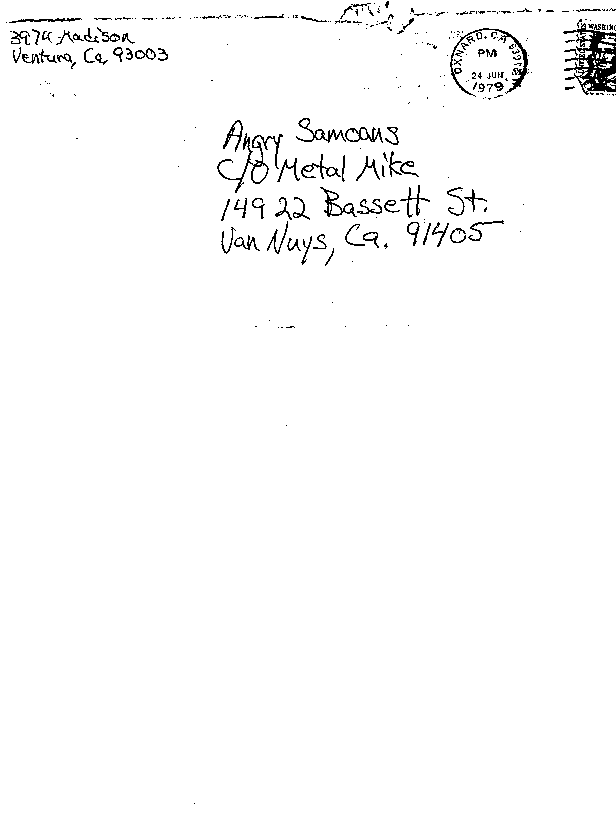 Madison
Ventura, Ca, 93003
OXNARD, CA
PM
24 JUN
1979
Angry Samoans
C/O Metal Mike
14922 Bassett St.
Van Nuys, Ca. 91405